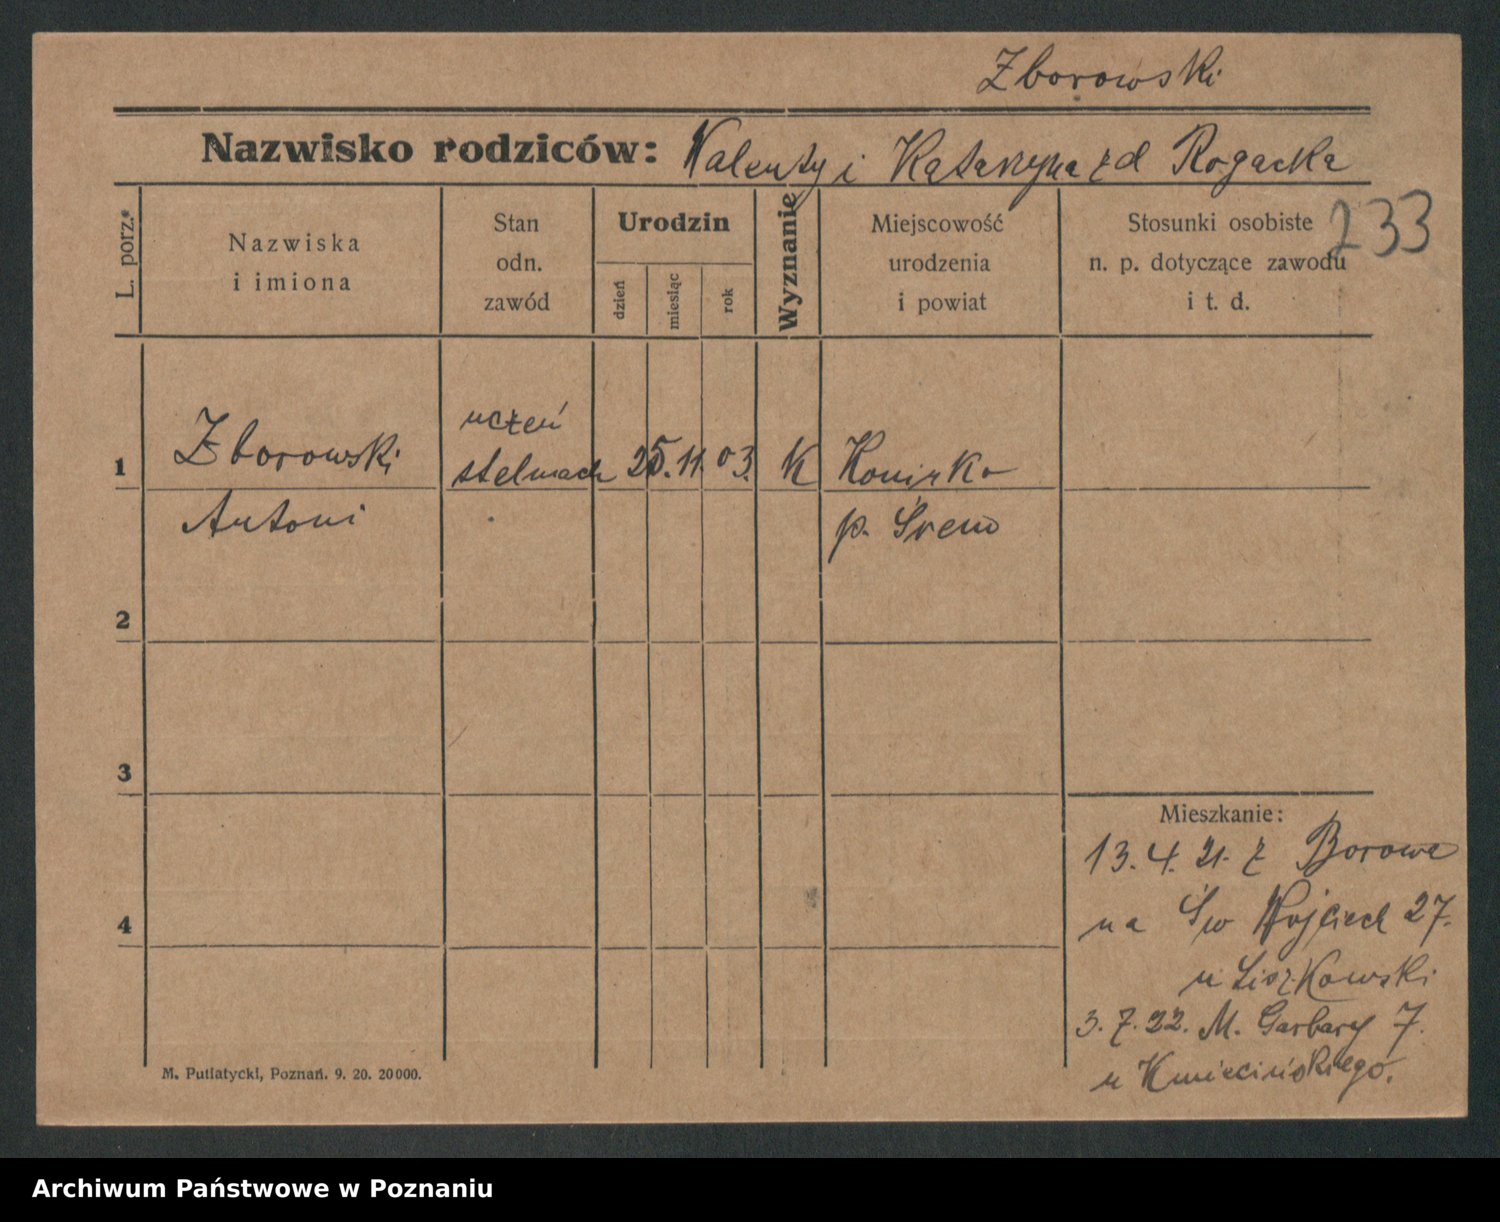 Zborowski
Nazwisko rodziców: Walenty i Katarzyna zd Rogacka
233
L. porz.
Nazwiska
i imiona
Stan
odn.
zawód
Urodzin
dzień
miesiąc
rok
Wyznanie
Miejscowość
urodzenia
i powiat
Stosunki osobiste
n. p. dotyczące zawodu
i t. d.
1
Zborowski
Antoni
uczeń
stelmach
25. 11. 03.
K
p. Śrem
2
3
4
Mieszkanie:
13. 4. 21. z Borowa
na Św Wojciech 27.
u Liszkowski
3. 7. 22. M. Garbary 7.
u Kmiecińskiego.
M. Putiatycki, Poznań. 9. 20. 20000.
Archiwum Państwowe w Poznaniu